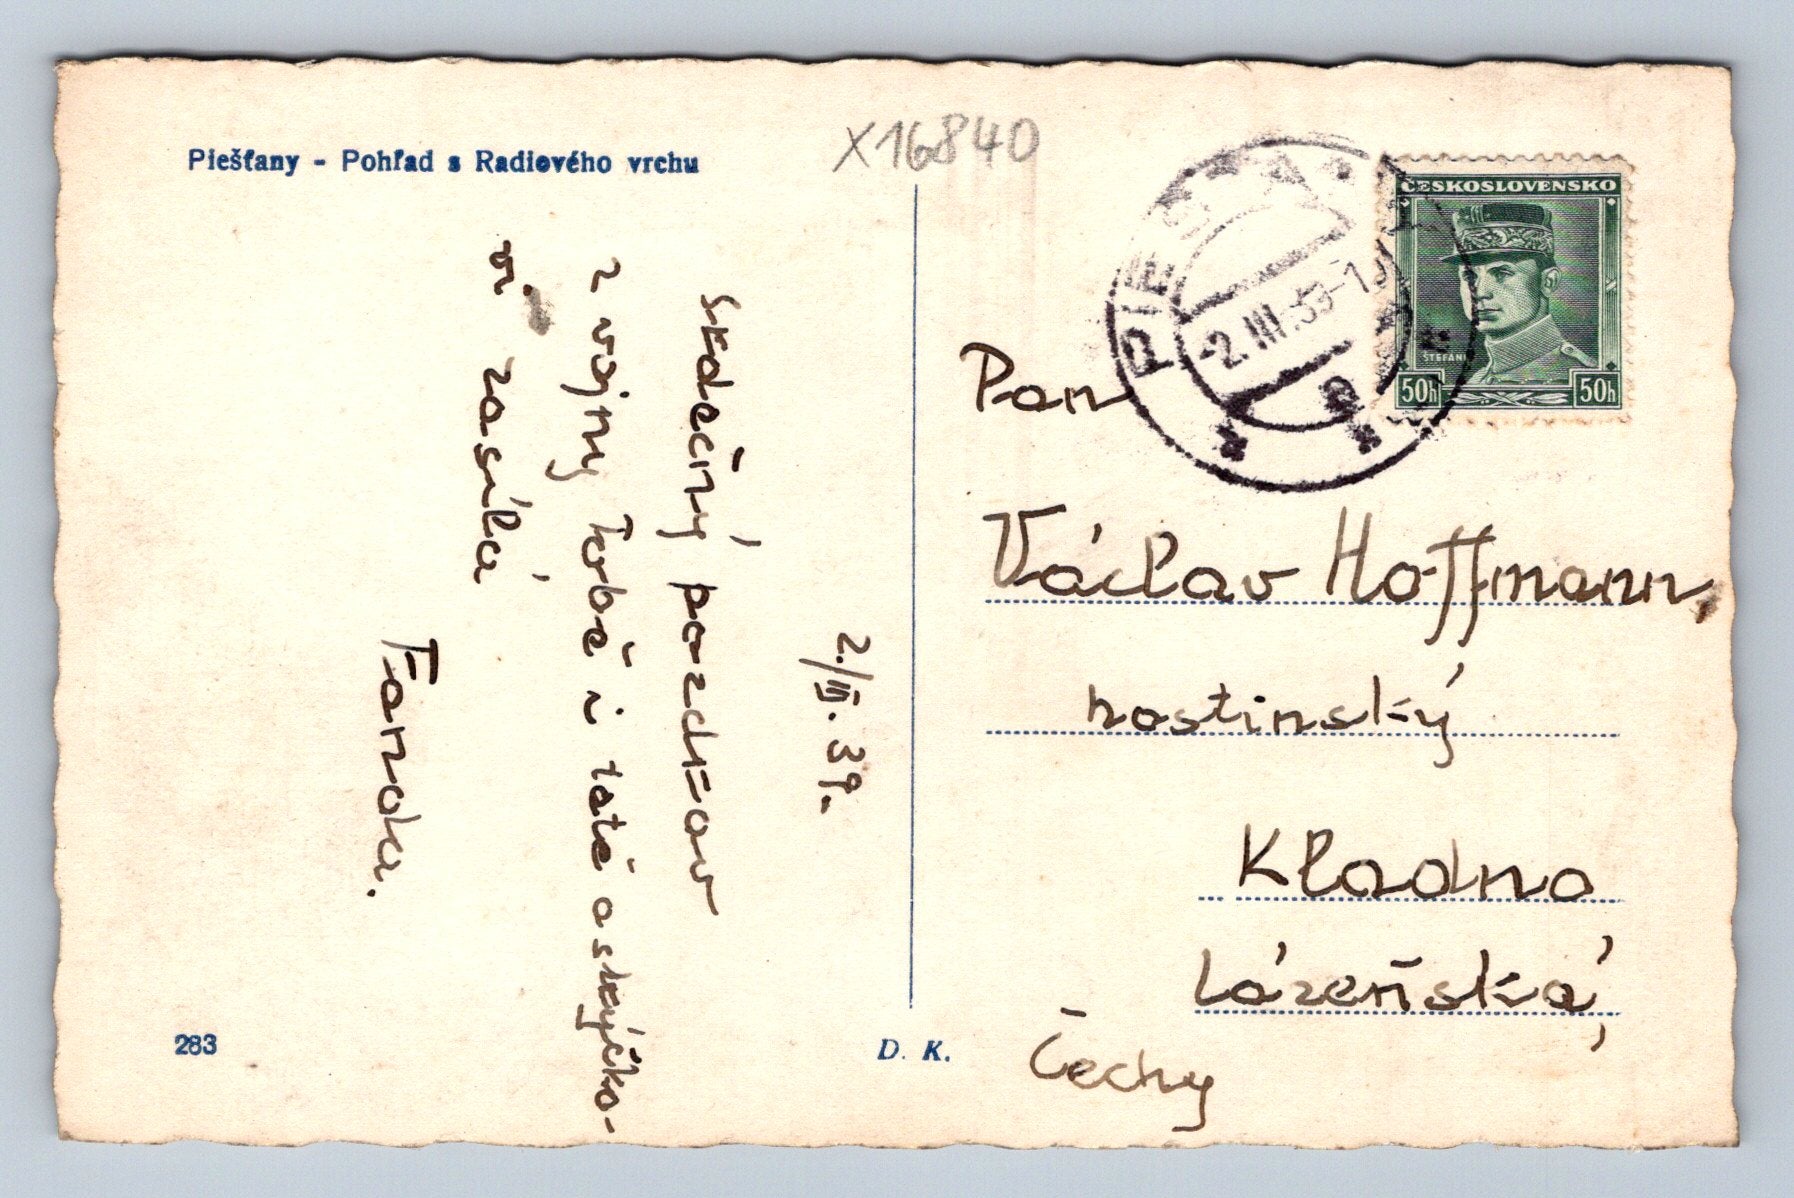 Piešťany - Pohľad s Radiového vrchu
X16840
ČESKOSLOVENSKO
ŠTEFÁNIK
50h 50h
PIEŠŤANY
-2.III.39-1
2./III. 39.
Srdečný pozdrav
z vojny Tobě i taté a strýčko-
vi zasílá
Fanda.
Pan
Václav Hoffmann,
hostinský
Kladno
Lázeňská,
Čechy
283
D. K.